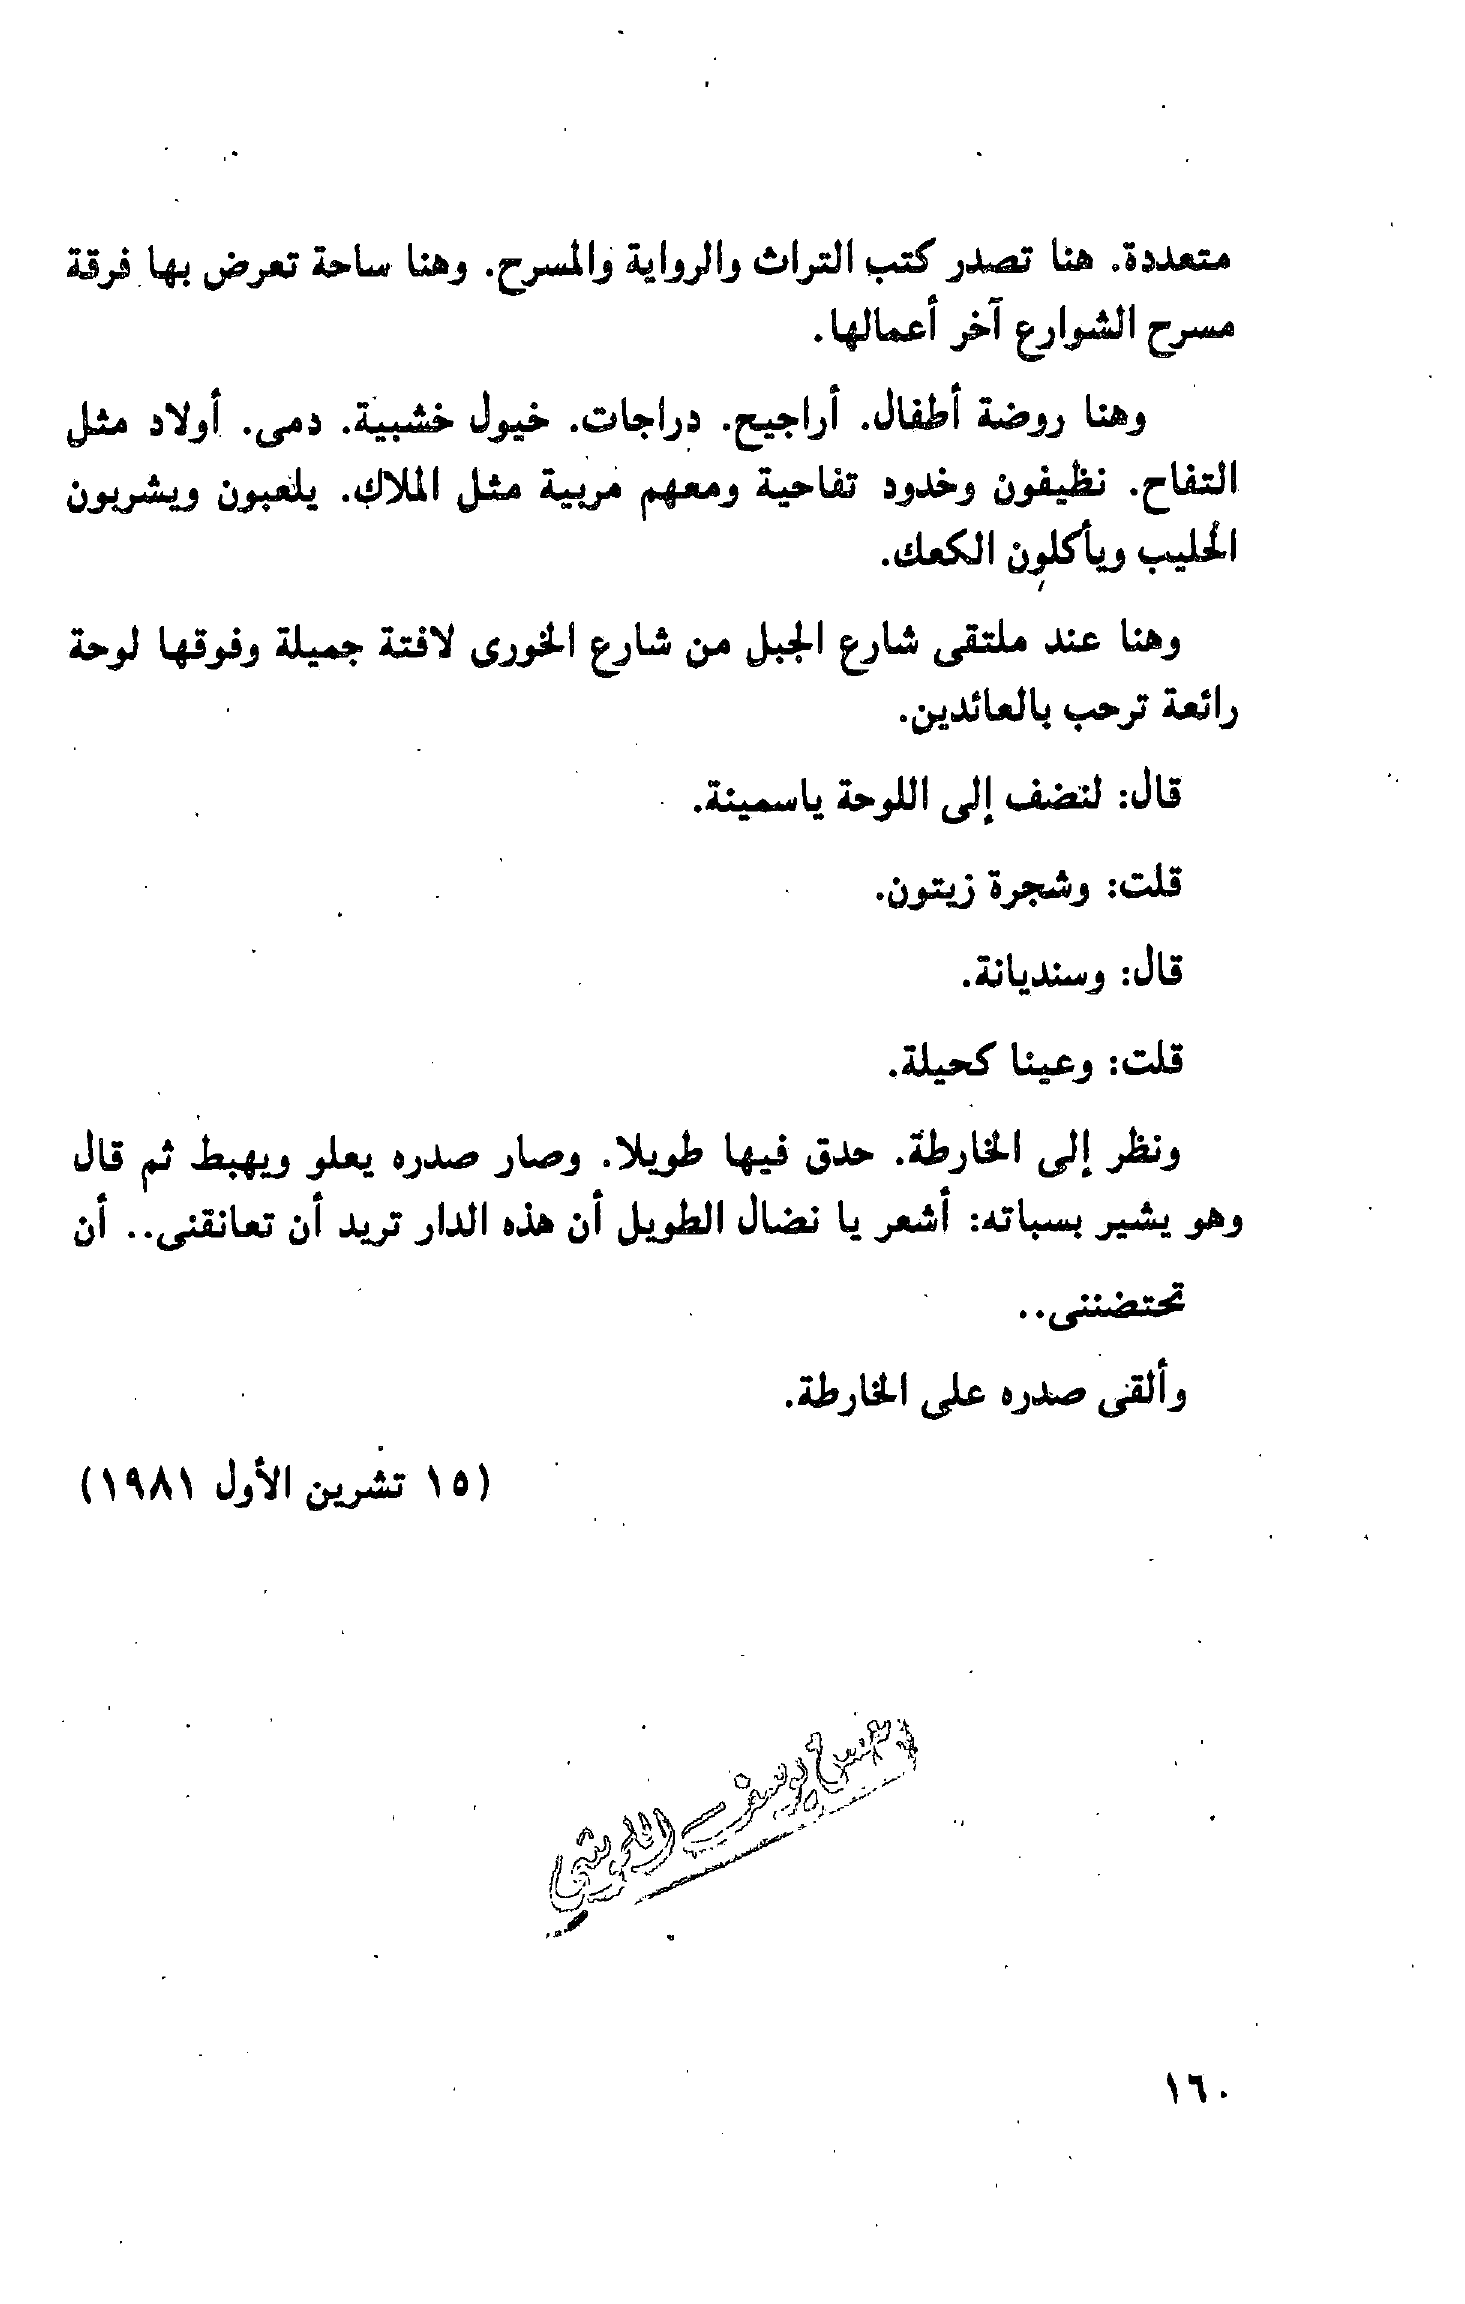 متعددة. هنا تصدر كتب التراث والرواية والمسرح. وهنا ساحة تعرض بها فرقة
مسرح الشوارع آخر أعمالها.
وهنا روضة أطفال. أراجيح. دراجات. خيول خشبية. دمى. أولاد مثل
التفاح. نظيفون وخدود تفاحية ومعهم مربية مثل الملاك. يلعبون ويشربون
الحليب ويأكلون الكعك.
وهنا عند ملتقى شارع الجبل من شارع الخورى لافتة جميلة وفوقها لوحة
رائعة ترحب بالعائدين.
قال: لنضف إلى اللوحة ياسمينة.
قلت: وشجرة زيتون.
قال: وسنديانة.
قلت: وعينا كحيلة.
ونظر إلى الخارطة. حدق فيها طويلا. وصار صدره يعلو ويهبط ثم قال
وهو يشير بسباته: أشعر يا نضال الطويل أن هذه الدار تريد أن تعانقنى.. أن
تحتضننى..
وألقى صدره على الخارطة.
(١٥ تشرين الأول ١٩٨١)
يوسف
١٦٠